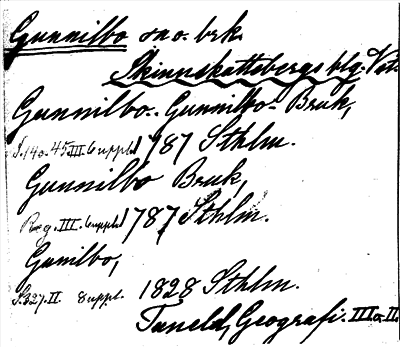 Gunnilbo sno. brk.
Skinnskattebergs blg. Vst.
Gunnilbo. Gunnilbo-Bruk,
S. 140. 45 III. 6 uppl. 1787 Sthlm.
Gunnilbo Bruk,
Reg. III. 6 uppl. 1787 Sthlm.
Gunilbo,
S. 327. II. 8 uppl. 1828 Sthlm.
Tuneld, Geografi. III o. II.